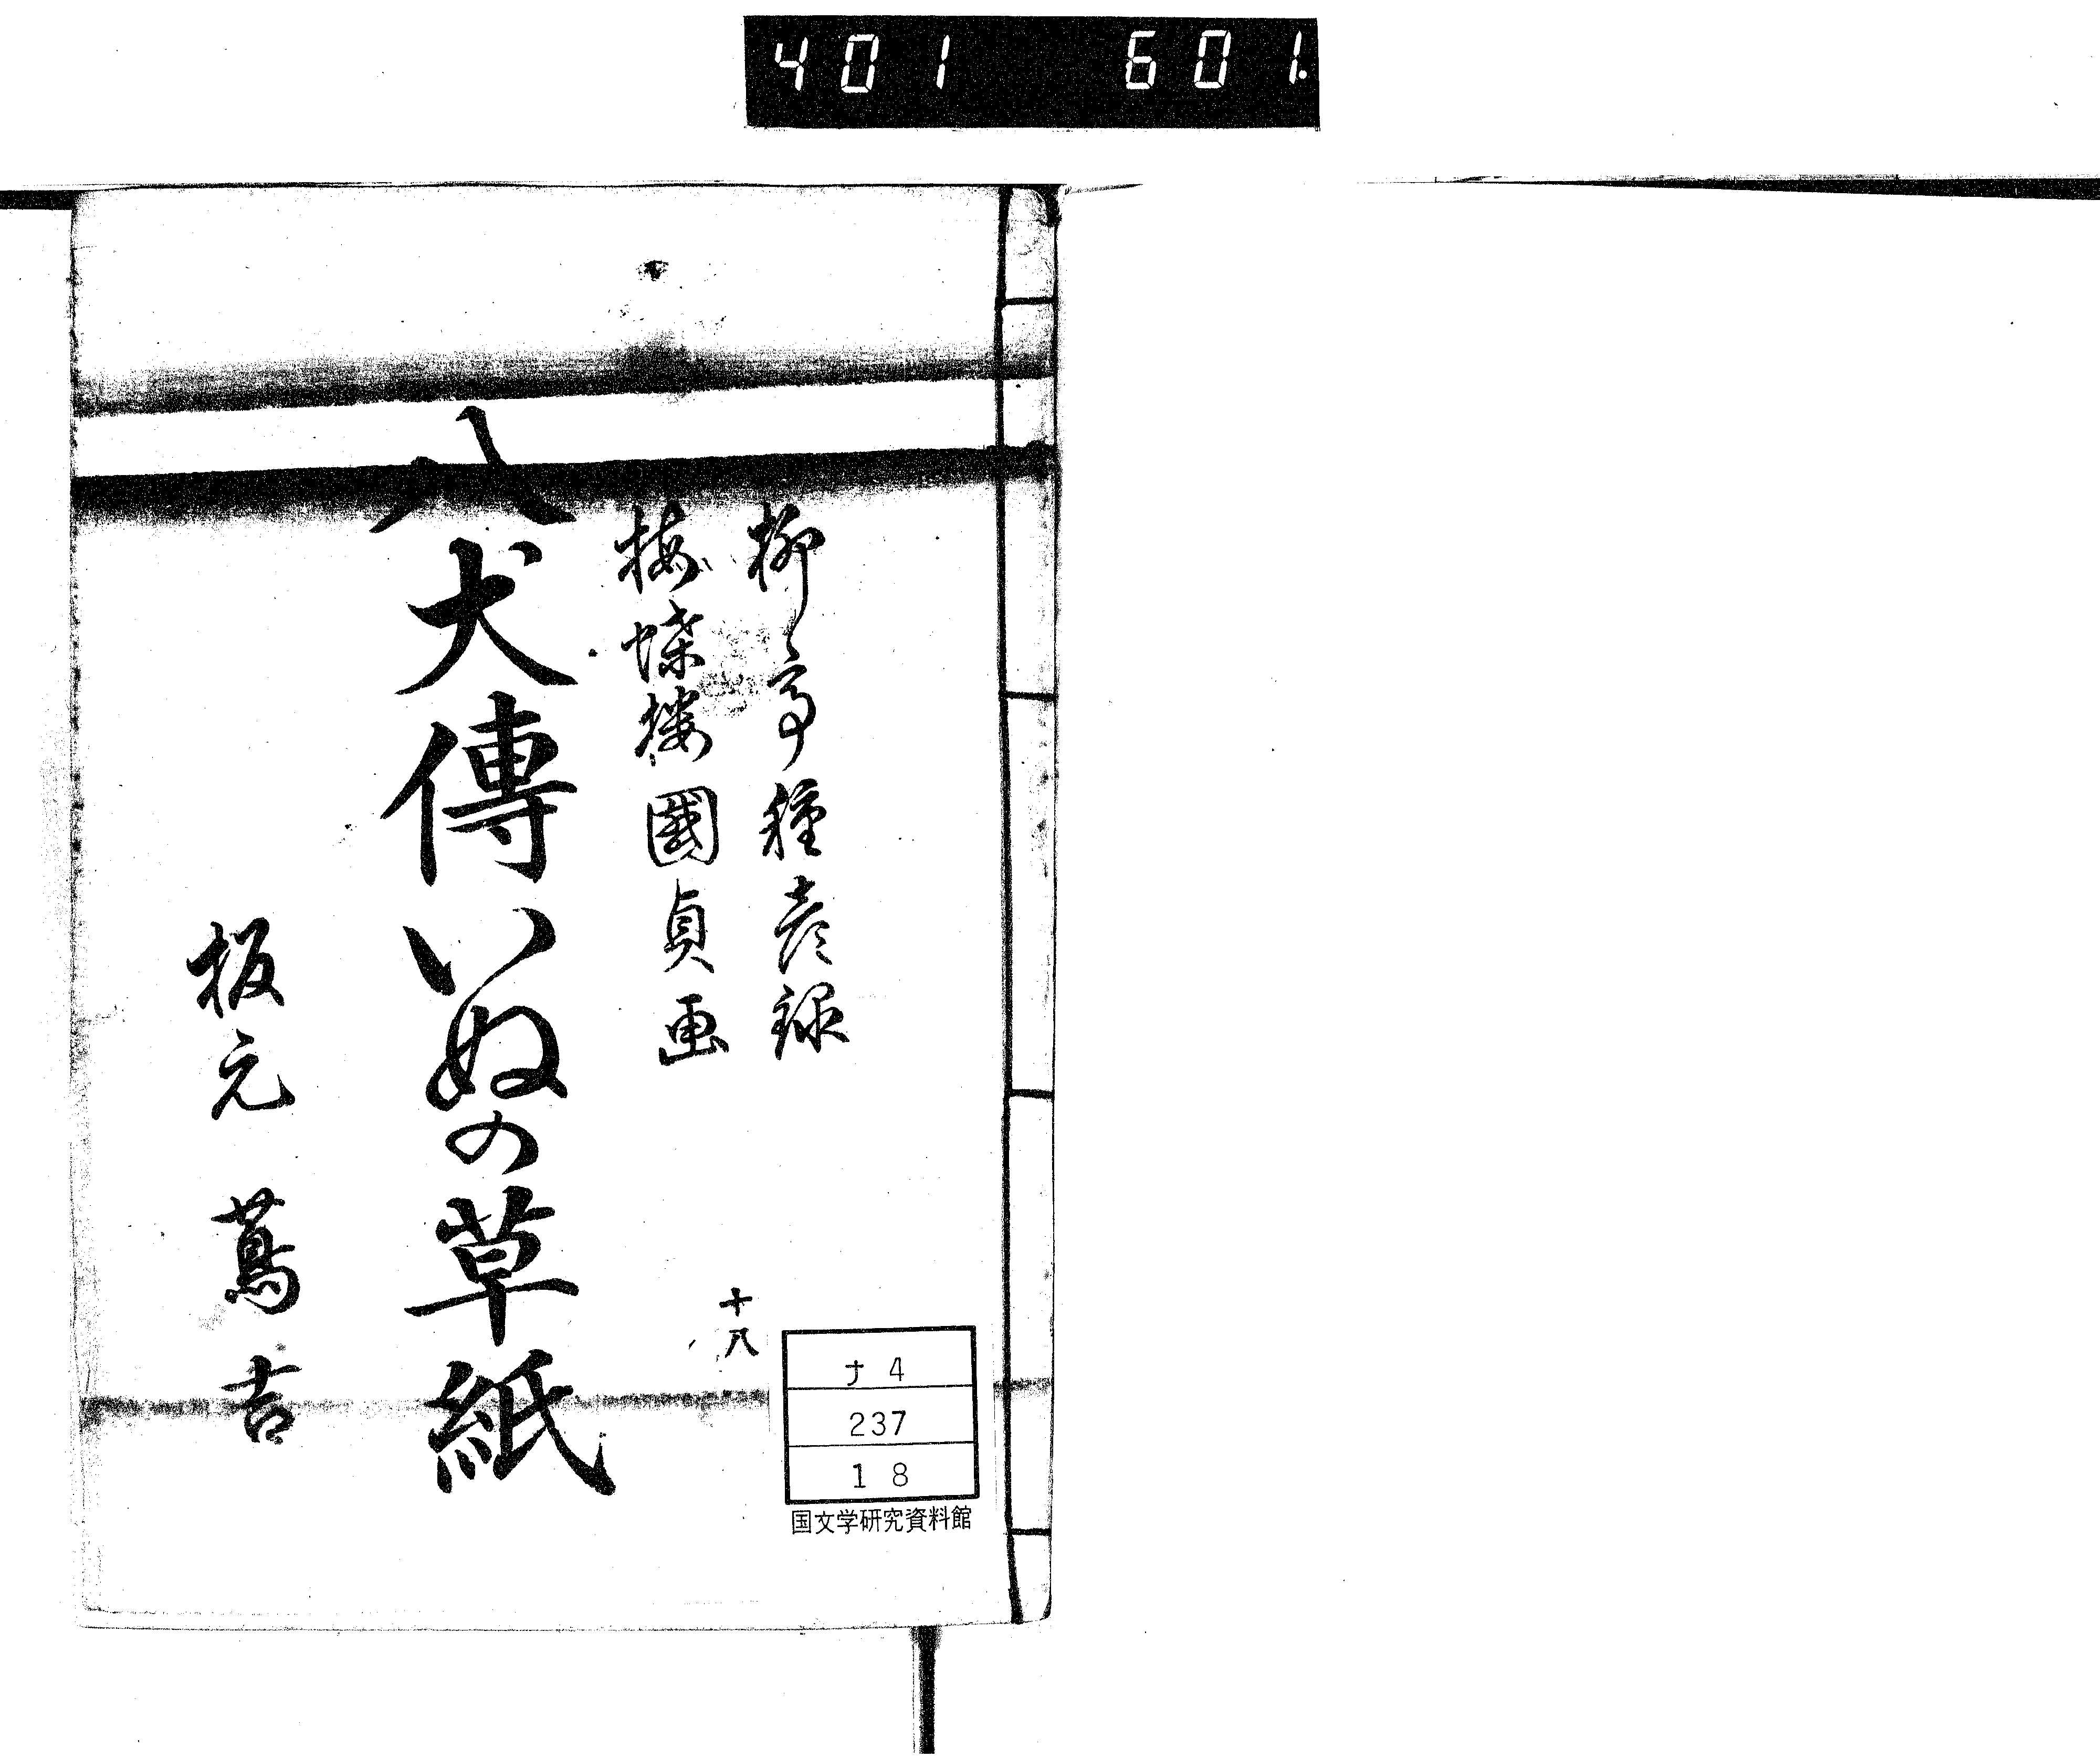 401 601.
柳亭種彦録
梅蝶楼國貞画
八犬傳いぬの草紙
板元 蔦吉
十八
ナ 4
237
1 8
国文学研究資料館